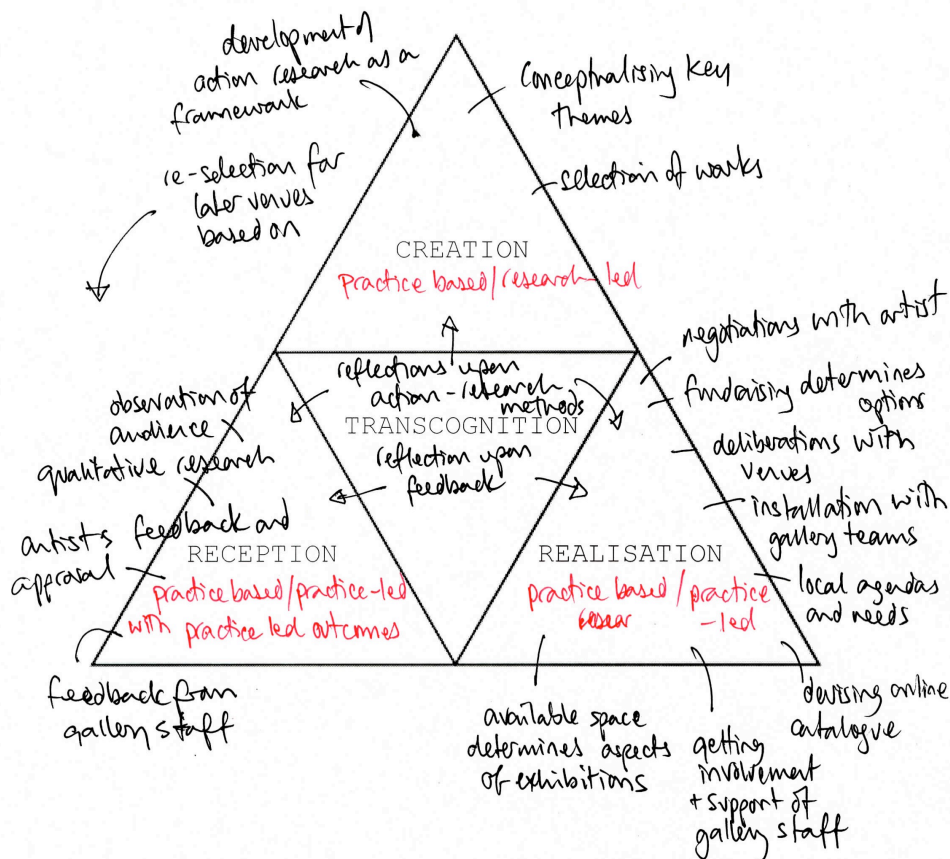 development of
action research as a
framework
conceptualising key
themes
re-selection for
later venues
based on
selection of works
CREATION
practice based/research-led
negotiations with artist
fundraising determines
options
deliberations with
venues
installation with
gallery teams
local agendas
and needs
reflections upon
action-research
methods
TRANSCOGNITION
reflection upon
feedback
observation of
audience
qualitative research
artists feedback and
appraisal
RECEPTION
practice based/practice-led
with practice led outcomes
REALISATION
practice based / practice
-led
feedback from
gallery staff
available space
determines aspects
of exhibitions
getting
involvement
+ support of
gallery staff
devising online
catalogue